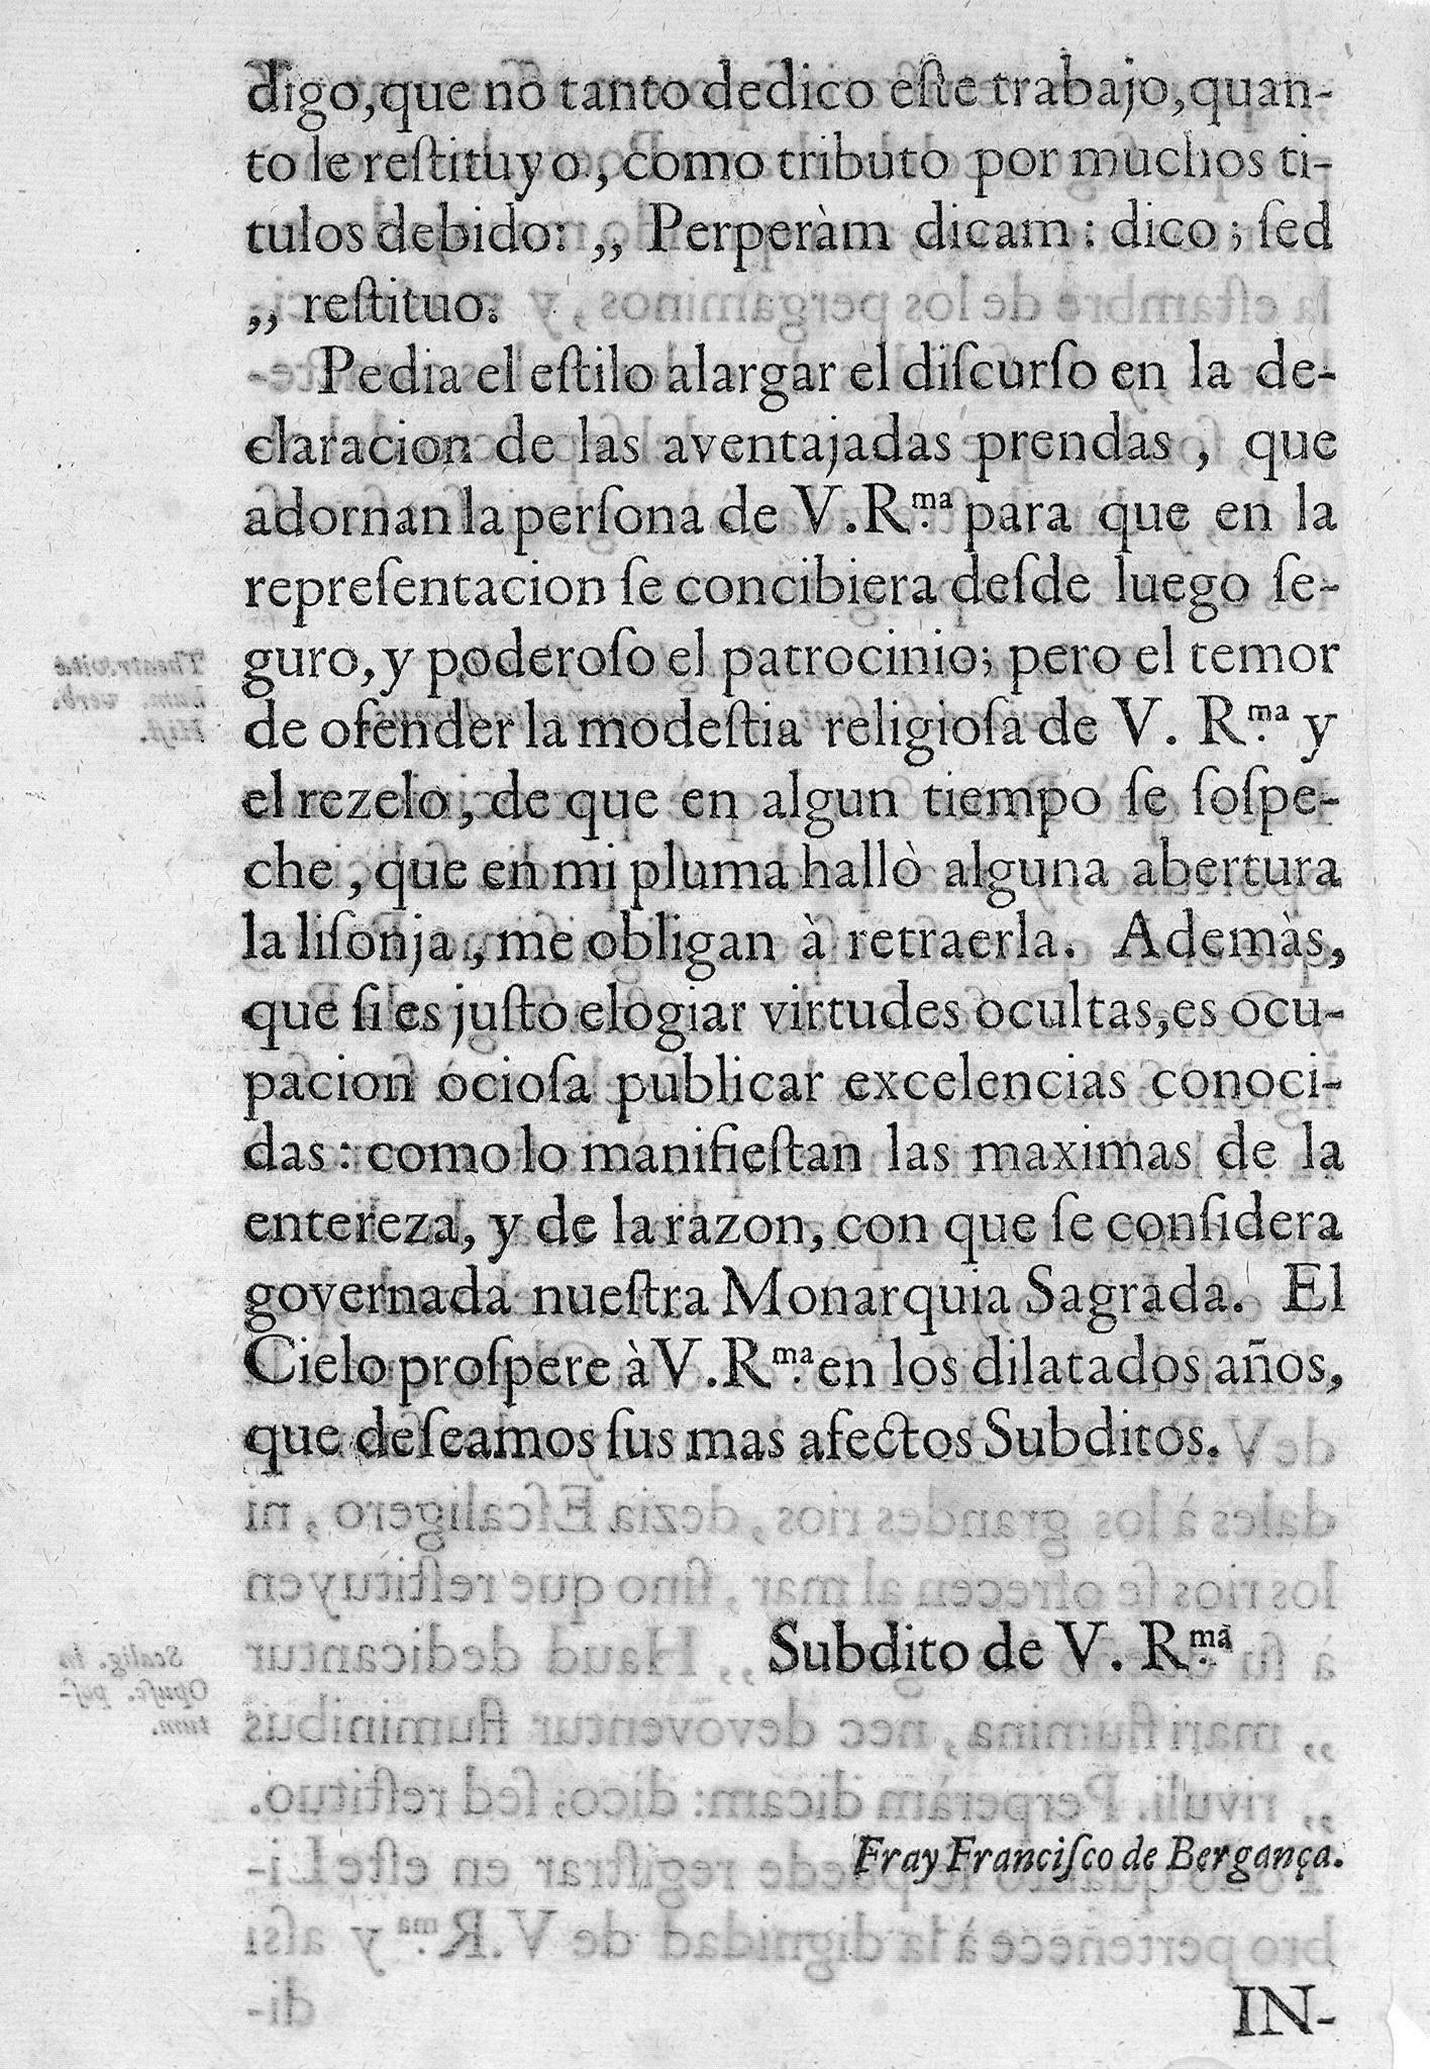 digo, que no tanto dedico eſte trabajo, quan-
to le reſtituyo, como tributo por muchos ti-
tulos debido: ,, Perperàm dicam: dico; ſed
,, reſtituo.
Pedia el eſtilo alargar el diſcurſo en la de-
claracion de las aventajadas prendas, que
adornan la perſona de V. R.ma para que en la
repreſentacion ſe concibiera deſde luego ſe-
guro, y poderoſo el patrocinio; pero el temor
de ofender la modeſtia religioſa de V. R.ma y
el rezelo, de que en algun tiempo ſe ſoſpe-
che, que en mi pluma hallò alguna abertura
la liſonja, me obligan à retraerla. Ademàs,
que ſi es juſto elogiar virtudes ocultas, es ocu-
pacion ocioſa publicar excelencias conoci-
das: como lo manifieſtan las maximas de la
entereza, y de la razon, con que ſe conſidera
governada nueſtra Monarquia Sagrada. El
Cielo proſpere à V. R.ma en los dilatados años,
que deſeamos ſus mas afectos Subditos.
Subdito de V. R.ma
Fray Franciſco de Bergança.
IN-